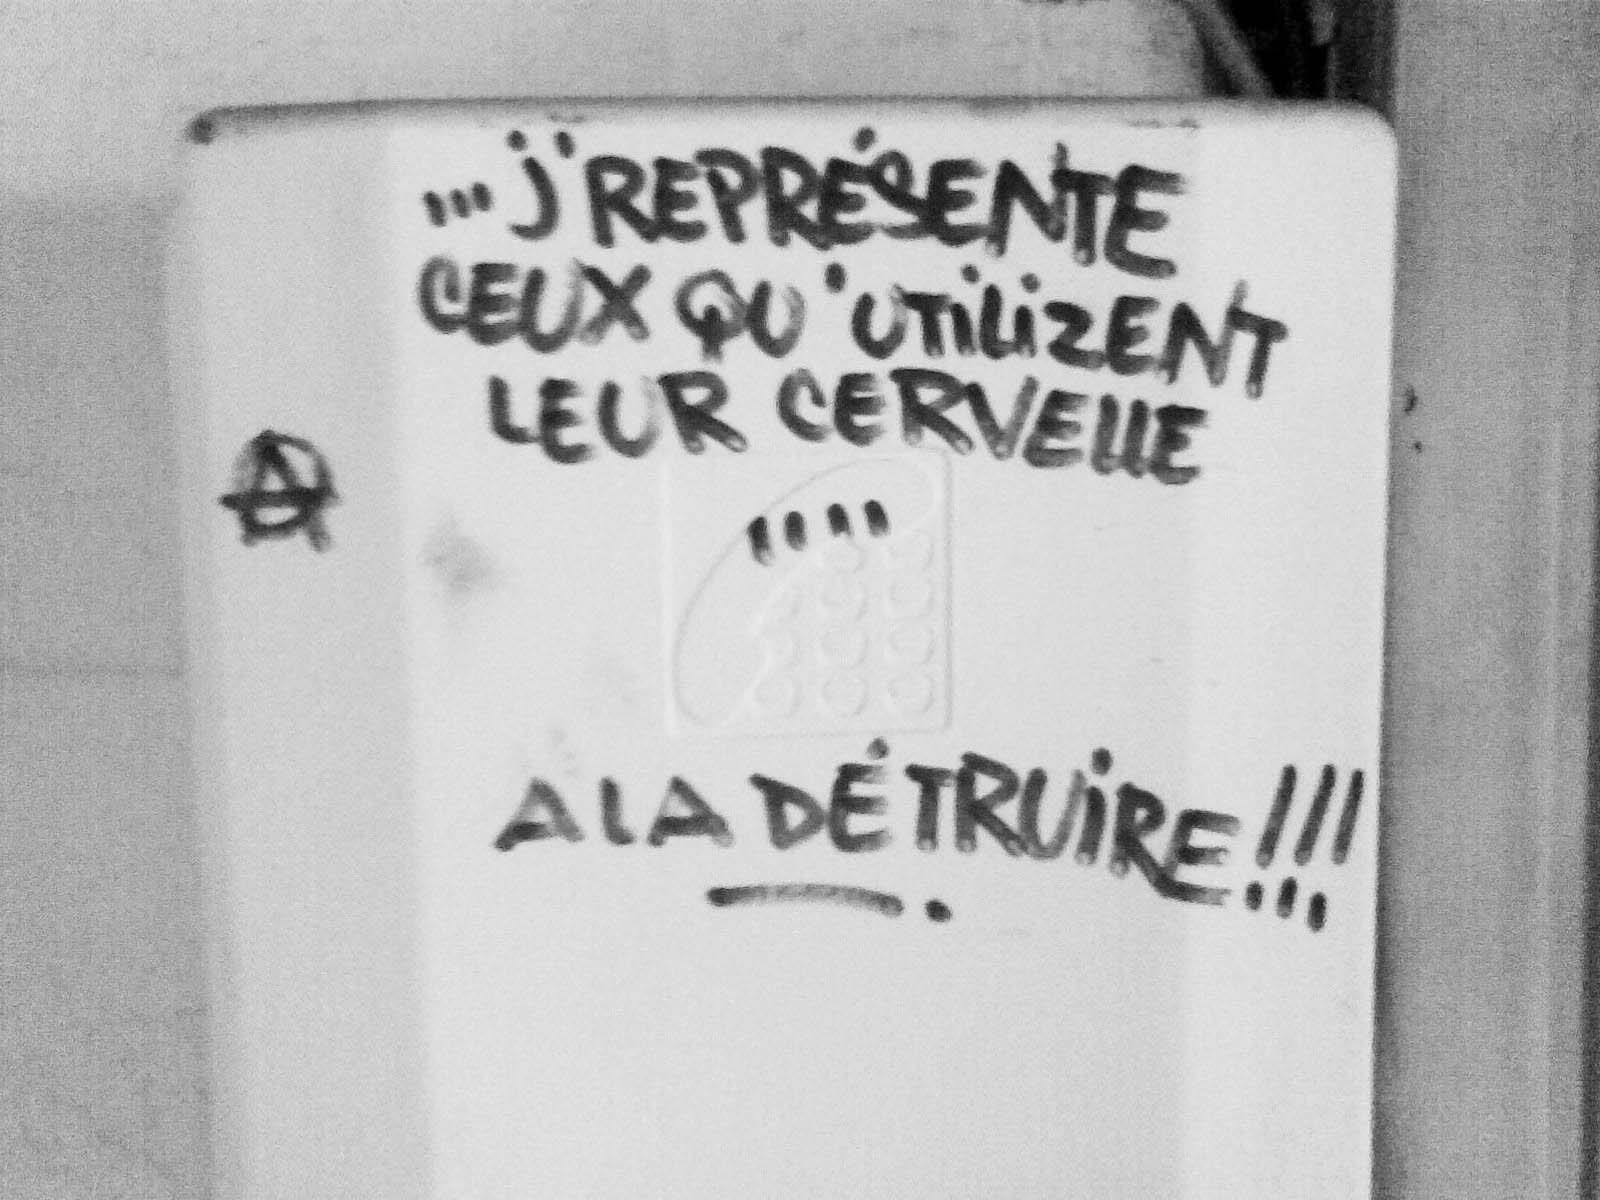 ...J'REPRÉSENTE
CEUX QU'UTILIZENT
LEUR CERVELLE
....
A LA DÉTRUIRE!!!
A